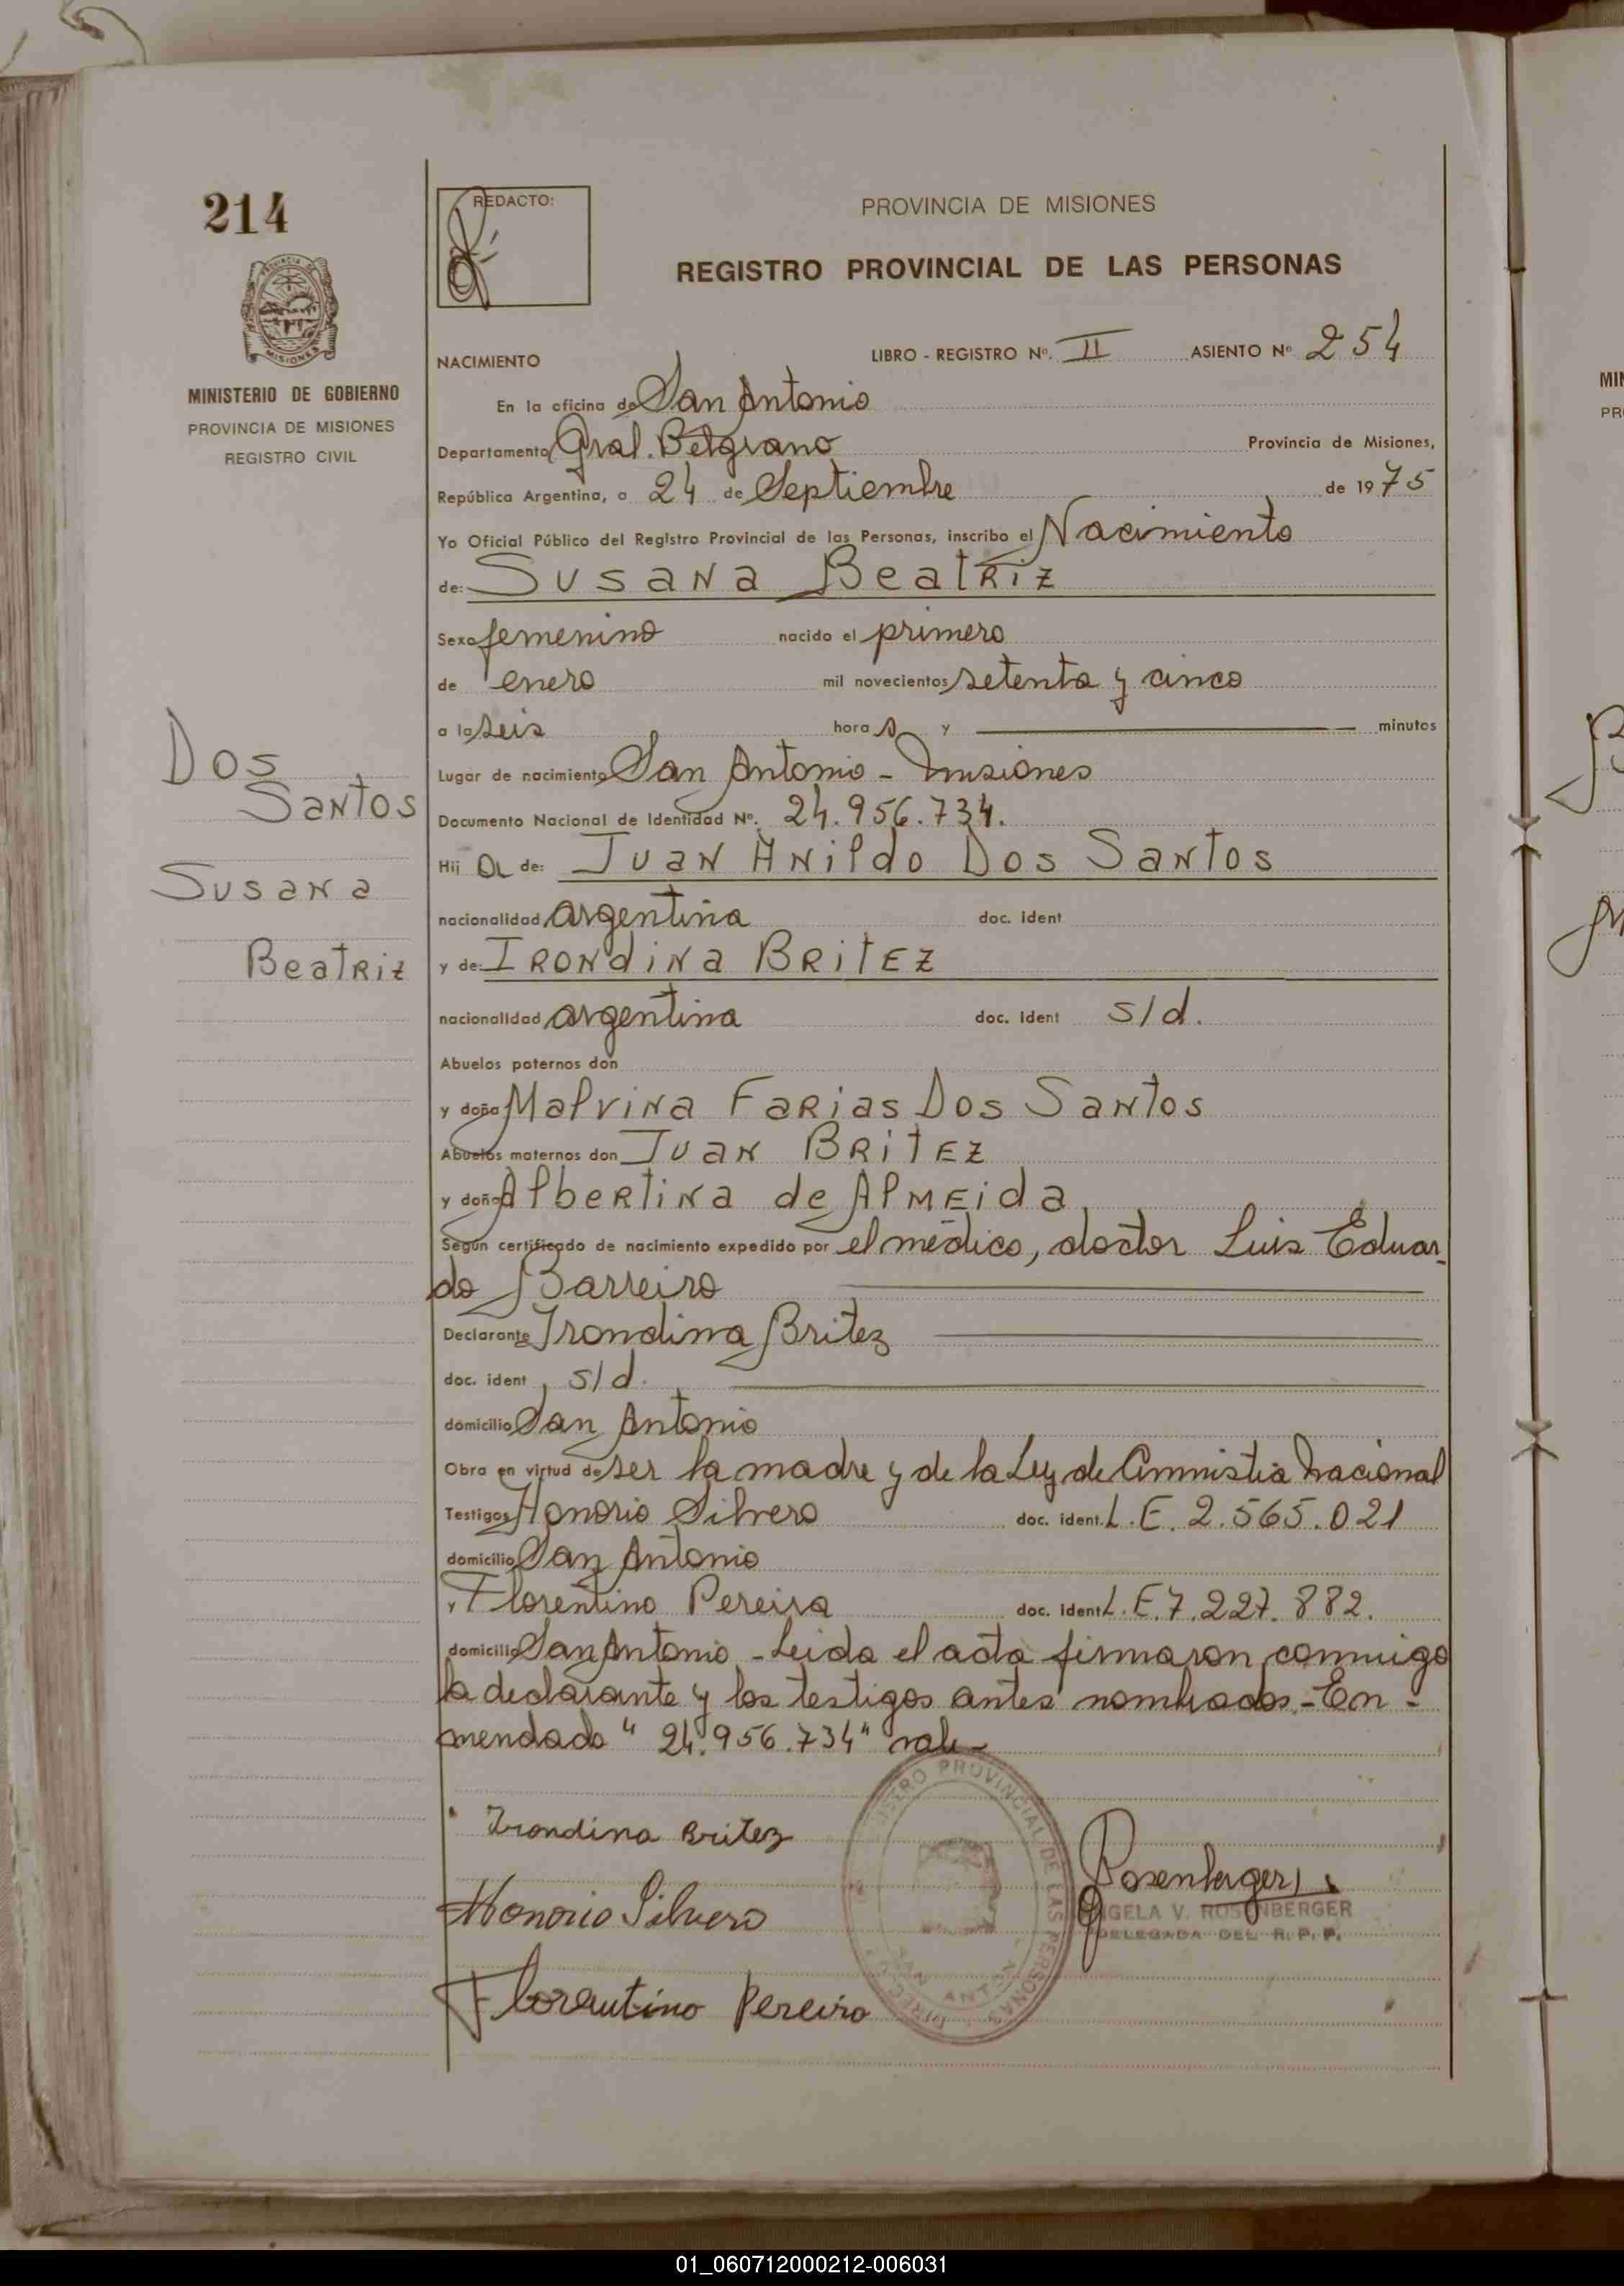 214
MINISTERIO DE GOBIERNO
PROVINCIA DE MISIONES
REGISTRO CIVIL
Dos
Santos
Susana
Beatriz
REDACTO:
PROVINCIA DE MISIONES
REGISTRO PROVINCIAL DE LAS PERSONAS
NACIMIENTO LIBRO - REGISTRO Nº. II ASIENTO Nº 254
En la oficina de San Antonio
Departamento Gral. Belgrano Provincia de Misiones,
República Argentina, a 24 de Septiembre de 1975
Yo Oficial Público del Registro Provincial de las Personas, inscribo el Nacimiento
de: Susana Beatriz
Sexo femenino nacido el primero
de enero mil novecientos setenta y cinco
a la seis hora s y minutos
Lugar de nacimiento San Antonio - Misiones
Documento Nacional de Identidad Nº. 24.956.734.
Hij a de: Juan Anildo Dos Santos
nacionalidad argentina doc. ident
y de: Irondina Britez
nacionalidad argentina doc. ident s/d.
Abuelos paternos don
y doña Malvina Farias Dos Santos
Abuelos maternos don Juan Britez
y doña Albertina de Almeida
Según certificado de nacimiento expedido por el médico, doctor Luis Eduar-
do Barreiro
Declarante Irondina Britez
doc. ident s/d.
domicilio San Antonio
Obra en virtud de ser la madre y de la Ley de Amnistia Nacional
Testigos Honorio Silvero doc. ident. L.E. 2.565.021
domicilio San Antonio
y Florentino Pereira doc. ident L.E. 7.227.882.
domicilio San Antonio - Leida el acta firmaron conmigo
la declarante y los testigos antes nombrados.- En-
mendado "24.956.734" vale-
Irondina Britez
Honorio Silvero
Florentino Pereira
REGISTRO PROVINCIAL DE LAS PERSONAS
SAN ANTONIO
Rosenberger
ANGELA V. ROSENBERGER
DELEGADA DEL R. P. P.
01_060712000212-006031